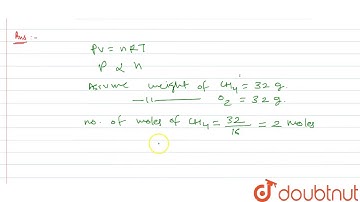 Ans :-
PV = nRT
P ∝ n
Assume weight of CH4 = 32 g.
—11— O2 = 32 g.
no. of moles of CH4 = 32/16 = 2 moles
doubtnut